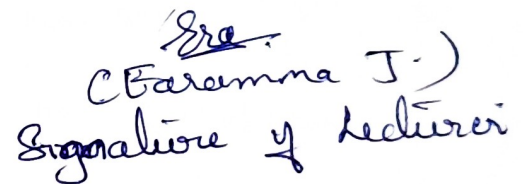 (Earamma J.)
Signature of Lecturer